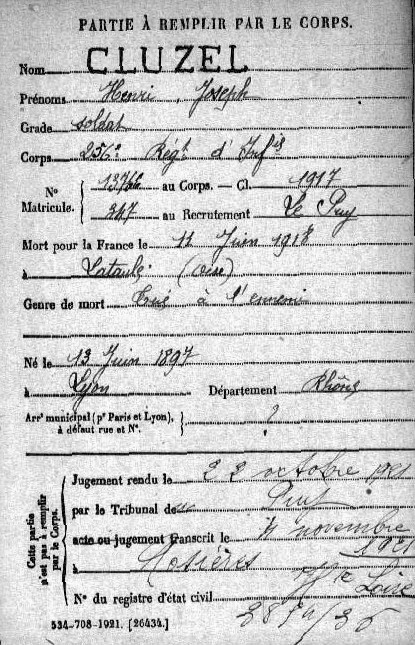 PARTIE À REMPLIR PAR LE CORPS.
Nom CLUZEL
Prénoms Henri, Joseph
Grade soldat
Corps 256e Régt d'Infie
No Matricule. 13766 au Corps. — Cl. 1917
347 au Recrutement Le Puy
Mort pour la France le 11 Juin 1918
à Lataule (Oise)
Genre de mort Tué à l'ennemi
Né le 13 Juin 1897
à Lyon Département Rhône
Arrt municipal (pr Paris et Lyon), à défaut rue et No. ?
Cette partie n'est pas à remplir par le Corps.
Jugement rendu le 22 octobre 1921
par le Tribunal de Puy
acte ou jugement transcrit le novembre
1921
à Rosières
Hte Loire
No du registre d'état civil
534-708-1921. [26434.]